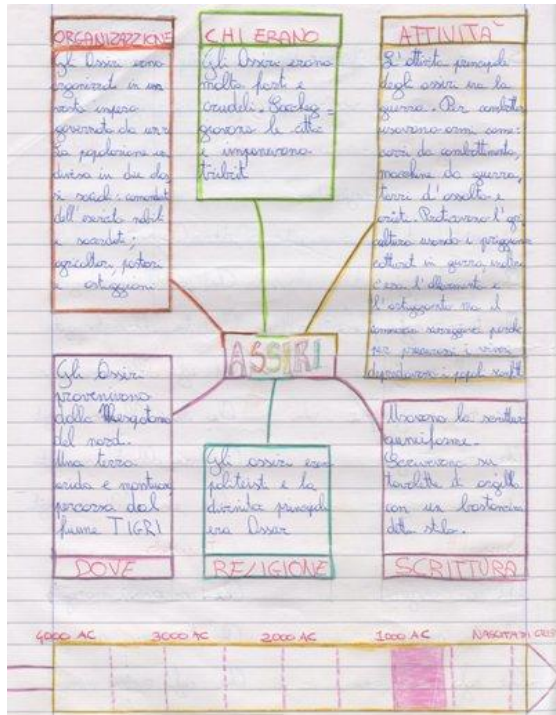 ORGANIZAZZIONE
Gli Assiri erano
organizzati in un
vasto impero
governato da un re
La popolazione era
divisa in due clas
si sociali: comandanti
dell'esercito nobili
e sacerdoti;
agricoltori, pastori
e artiggiani
CHI ERANO
Gli Assiri erano
molto forti e
crudeli. Saccheg=
giavano le città
e imponevano
tributi
ATTIVITÀ
L'attività principale
degli assiri era la
guerra. Per combattere
usavano armi come:
carri da combattimento,
macchine da guerra,
torri d'assalto e
arieti. Praticavano l'agri
coltura usando i priggionie
catturati in guerra, inoltre
c'era l'allevamento e
l'artiggianato ma il
commercio
perché
per procurarsi i viveri
depredavano i popoli
ASSIRI
Gli Assiri
provenivano
dalla Mesopotamia
del nord.
Una terra
arida e montuosa
percorsa dal
fiume TIGRI
DOVE
Gli assiri erano
politeisti e la
divinità principale
era Assur
RELIGIONE
Usavano la scrittura
cuneiforme.
Scrivevano su
tavolette di argilla
con un bastoncino
detto stilo.
SCRITTURA
4000 AC 3000 AC 2000 AC 1000 AC NASCITA DI CRIS